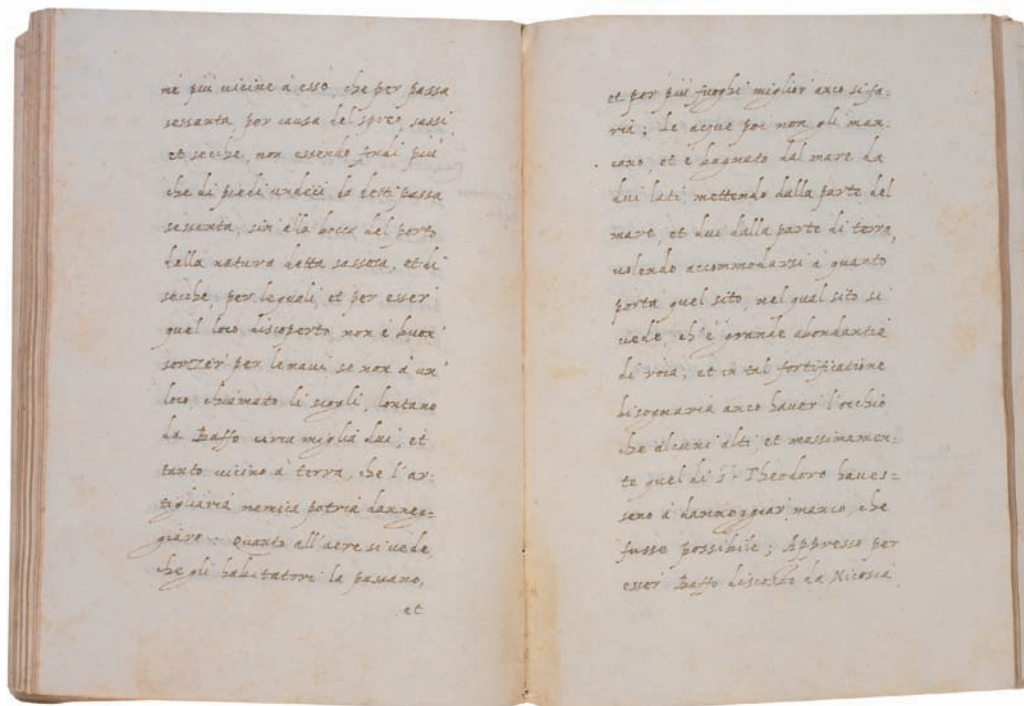 ne più uicine à esso, che per passa
sessanta, per causa del spreo, sassi
et secche, non essendo fondi più
che di piedi undeci da detti passa
sessanta, sin alla bocca del porto
della natura detta sassosa, et di
secche, per lequali, et per esser
quel loco discoperto non è buon
sorzer per lenaui se non à un
loco, chiamato li scogli, lontano
da Baffo circa miglia dui, et
tanto uicino à terra, che l'ar=
tigliaria nemica potria danneg=
giare: Quanto all'aere si uede,
che gli habitatori la passano,
et
et per più fuoghi miglior anco si fa=
ria; Le acque poi non gli man=
cano, et è bagnato dal mare da
dui lati, mettendo dalla parte del
mare, et dui dalla parte di terra,
uolendo accommodarsi à quanto
porta quel sito, nel qual sito si
uede, ch'è grande abondantia
di roca, et in tal fortificatione
bisognaria anco hauer l'occhio
che alcuni alti, et massimamen=
te quel di S. Theodoro haues=
sero à danneggiar manco, che
fusse possibile; Appresso per
esser Baffo discosto da Nicosia